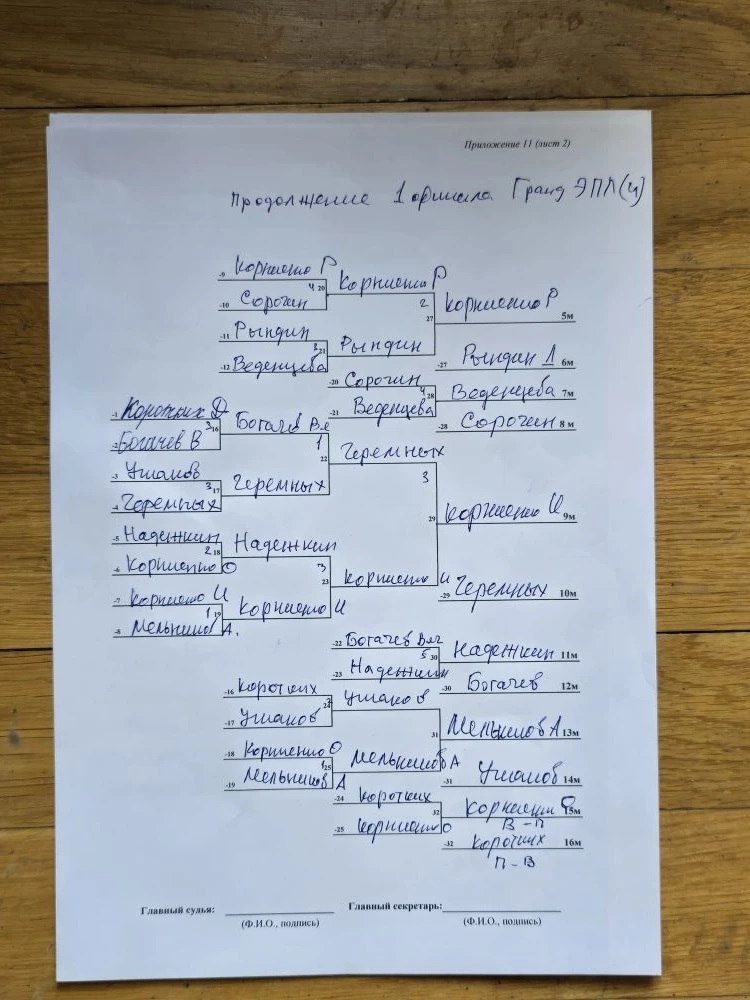 Приложение 11 (лист 2)
Продолжение 1 финала Гранд ЭПЛ(ч)
-9 Корниенко Р
4 20 Корниенко Р
-10 Сорочин
2 27 Корниенко Р 5м
-11 Рындин
3 21 Рындин
-12 Веденцева
-27 Рындин Л 6м
-20 Сорочин
4 28 Веденцева 7м
-21 Веденцева
-28 Сорочин 8м
-1 Коротких Д
3 16 Богачев Вл
-2 Богачев В
1 22 Черемных
-3 Ушаков
3 17 Черемных
-4 Черемных
3 29 Корниенко И 9м
-5 Надежкин
2 18 Надежкин
-6 Корниенко О
3 23 Корниенко И
-7 Корниенко И
1 19 Корниенко И
-8 Мельников А.
-29 Черемных 10м
-22 Богачев Вл
5 30 Надежкин 11м
-23 Надежкин
-30 Богачев 12м
-16 Коротких
24 Ушаков
-17 Ушаков
31 Мельников А 13м
-18 Корниенко О
1 25 Мельников А
-19 Мельников А
-31 Ушаков 14м
-24 Коротких
32 Корниенко О 15м
В-П
-25 Корниенко О
-32 Коротких 16м
П-В
Главный судья: Главный секретарь:
(Ф.И.О., подпись) (Ф.И.О., подпись)